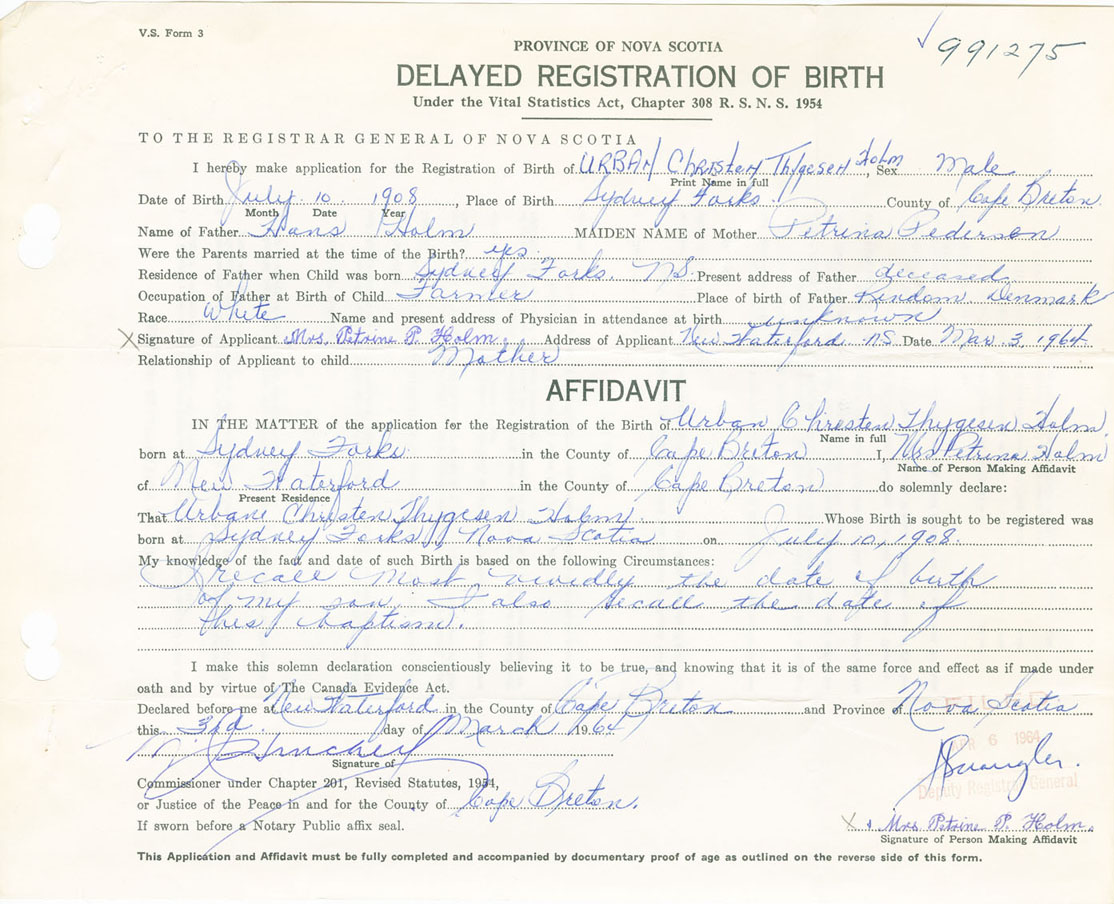 V.S. Form 3
991275
PROVINCE OF NOVA SCOTIA
DELAYED REGISTRATION OF BIRTH
Under the Vital Statistics Act, Chapter 308 R. S. N. S. 1954
TO THE REGISTRAR GENERAL OF NOVA SCOTIA
I hereby make application for the Registration of Birth of URBAN Christen Thygesen Holm, Sex Male
Print Name in full
Date of Birth July 10 1908, Place of Birth Sydney Forks County of Cape Breton
Month Date Year
Name of Father Hans Holm MAIDEN NAME of Mother Petrina Pederson
Were the Parents married at the time of the Birth? yes
Residence of Father when Child was born Sydney Forks, NS. Present address of Father deceased
Occupation of Father at Birth of Child Farmer Place of birth of Father Denmark
Race White Name and present address of Physician in attendance at birth unknown
X Signature of Applicant Mrs. Petrine P. Holm. Address of Applicant New Waterford NS. Date Mar. 3, 1964
Relationship of Applicant to child Mother
AFFIDAVIT
IN THE MATTER of the application for the Registration of the Birth of Urban Christen Thygesen Holm.
Name in full
born at Sydney Forks in the County of Cape Breton I, Mrs Petrina Holm
Name of Person Making Affidavit
of New Waterford in the County of Cape Breton do solemnly declare:
Present Residence
That Urbane Christen Thygesen Holm Whose Birth is sought to be registered was
born at Sydney Forks, Nova Scotia on July 10, 1908.
My knowledge of the fact and date of such Birth is based on the following Circumstances:
I recall most vividly the date of birth
of my son. I also recall the date of
this baptism.
I make this solemn declaration conscientiously believing it to be true, and knowing that it is of the same force and effect as if made under
oath and by virtue of The Canada Evidence Act.
Declared before me at New Waterford in the County of Cape Breton and Province of Nova Scotia
this 3rd day of March 1964
APR 6 1964
Signature of
Commissioner under Chapter 201, Revised Statutes, 1954,
Deputy Registrar General
or Justice of the Peace in and for the County of Cape Breton.
If sworn before a Notary Public affix seal.
X Mrs Petrine P. Holm.
Signature of Person Making Affidavit
This Application and Affidavit must be fully completed and accompanied by documentary proof of age as outlined on the reverse side of this form.